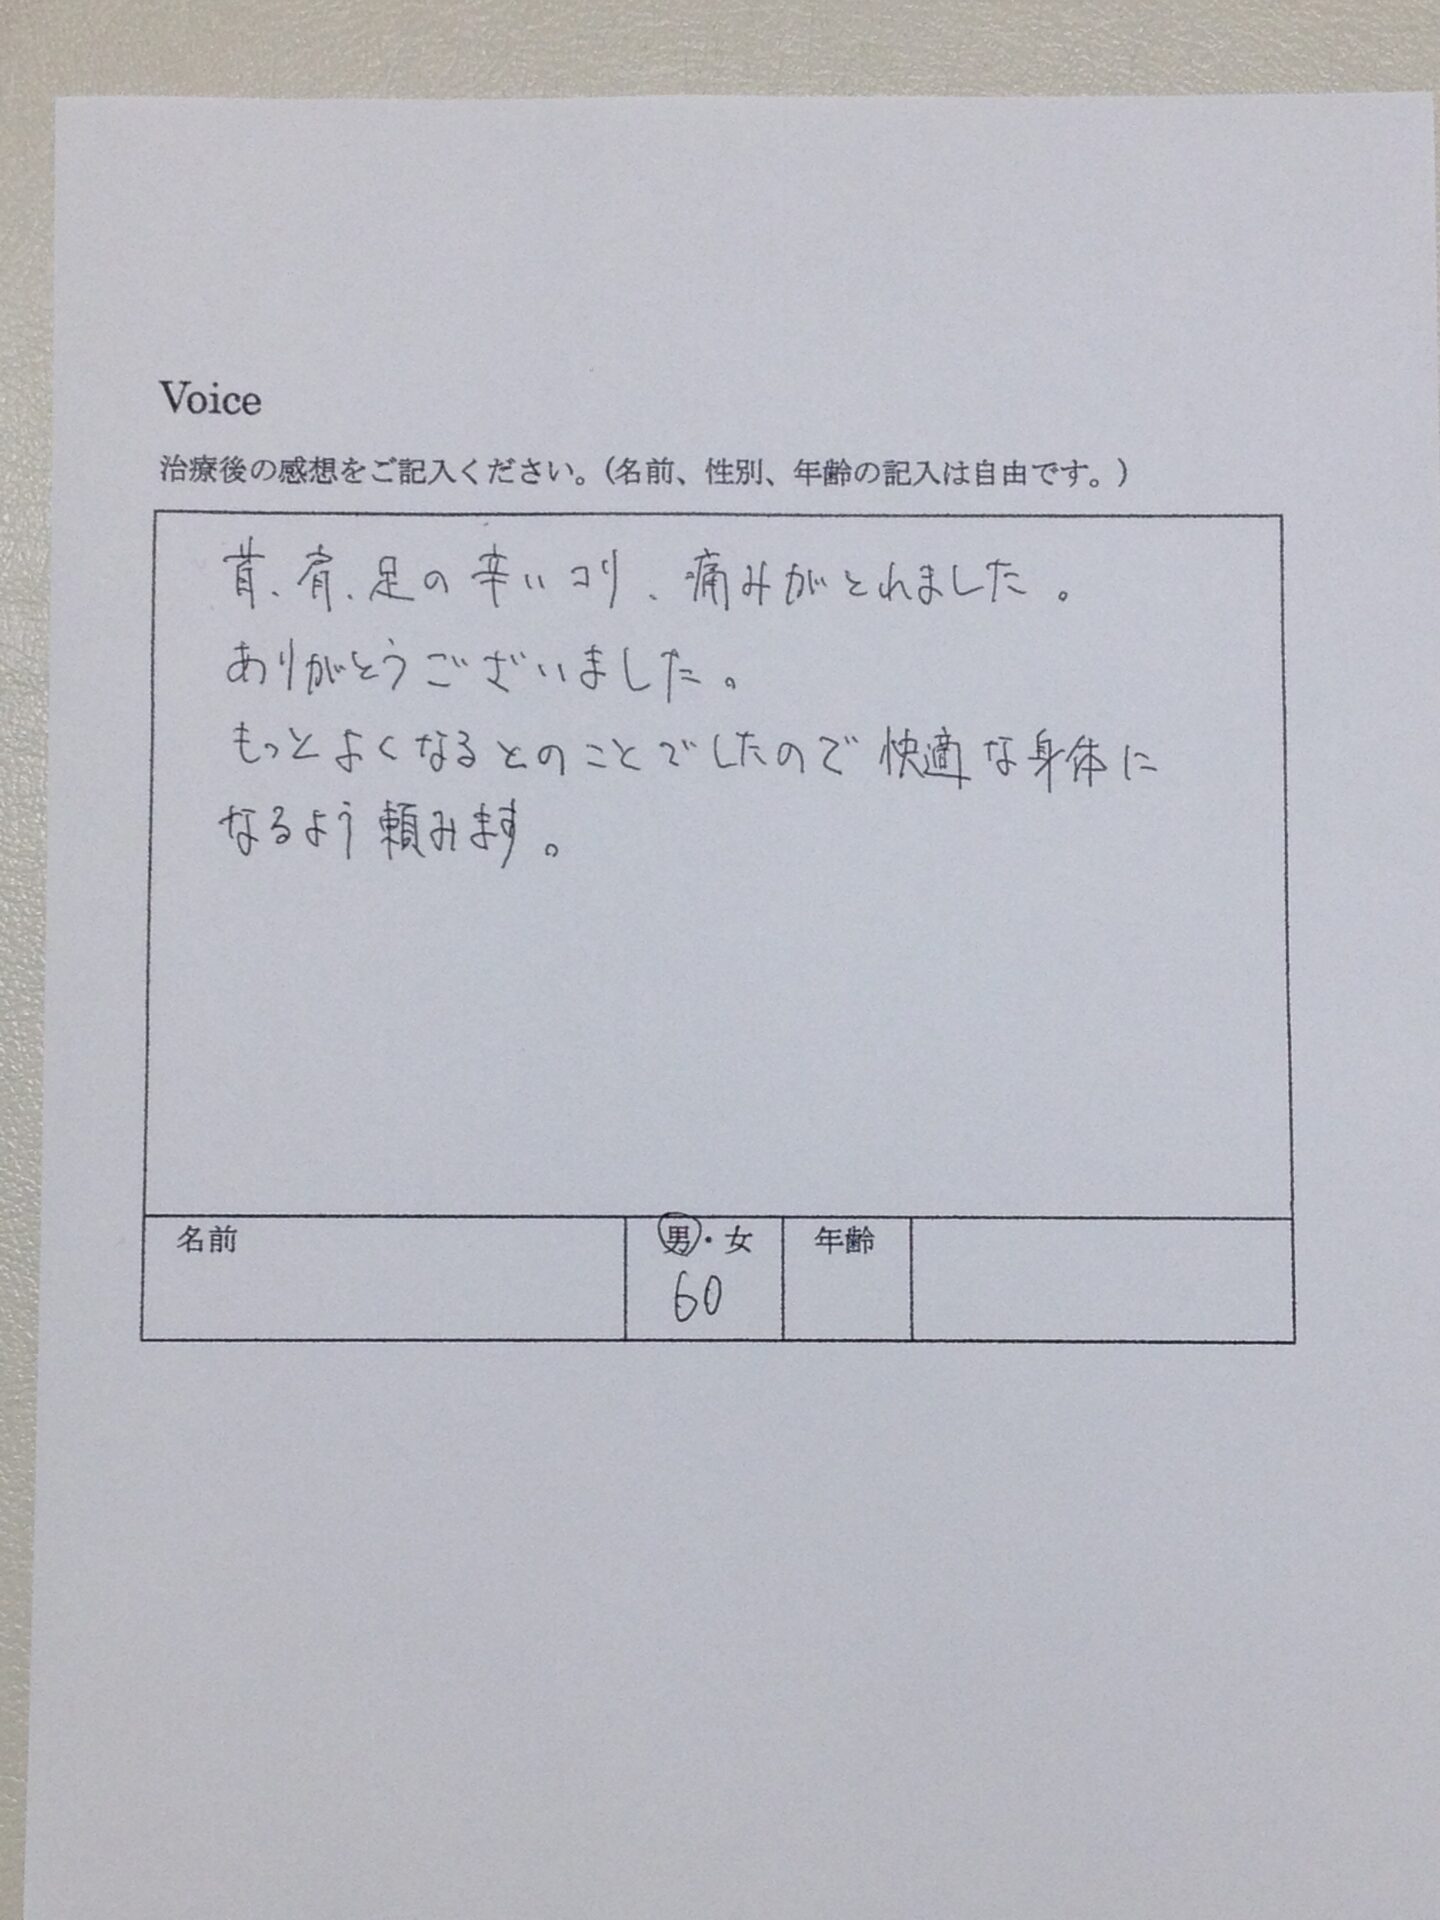 Voice
治療後の感想をご記入ください。（名前、性別、年齢の記入は自由です。）
首、肩、足の辛いコリ、痛みがとれました。
ありがとうございました。
もっとよくなるとのことでしたので快適な身体に
なるよう頼みます。
名前 男・女 年齢
60